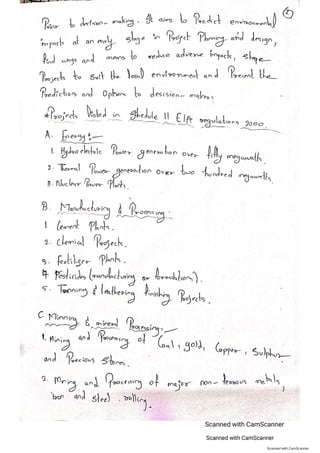 Prior to decision-making. It aims to Predict environmental
impacts at an early stage in Project Planning and design,
find ways and means to reduce adverse impacts, shape
Projects to suit the local environment and Present the
Predictions and Options to decision-makers.
*Projects listed in shedule II EIA regulations 2000.
A. Energy:-
1. Hydroelectric Power generation over fifty megawatth.
2. Thermal Power generation over two hundred megawatth.
3. Nuclear Power Plants.
B. Manufacturing & Processing.
1. Cement Plants.
2. Chemical Projects.
3. fertiliser Plants.
4. Pesticides (manufacturing or formulation).
5. Tanning & leathering finishing Projects.
C. Minning & mineral Processing:-
1. Mining and Processing of Coal, gold, Copper, Sulphur
and Precious Stones.
2. Mining and Processing of major non-ferrous metals,
iron and steel rolling.
Scanned with CamScanner
Scanned with CamScanner
Scanned with CamScanner